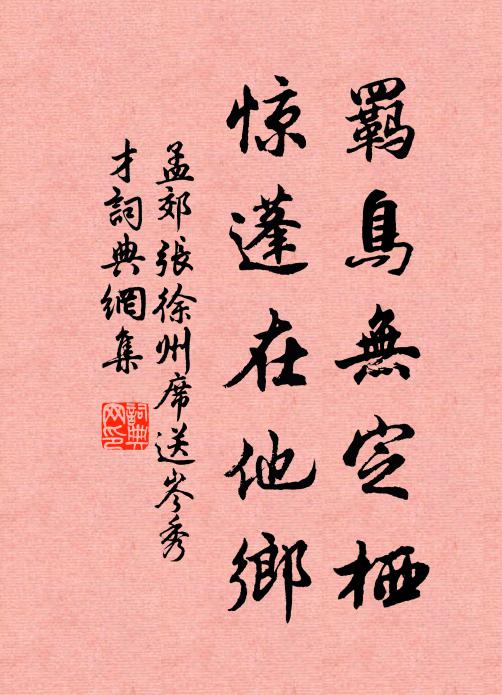 羈鳥無定栖
惊蓬在他鄉
孟郊張徐州席送岑秀
才詞典網集
詞典
网印